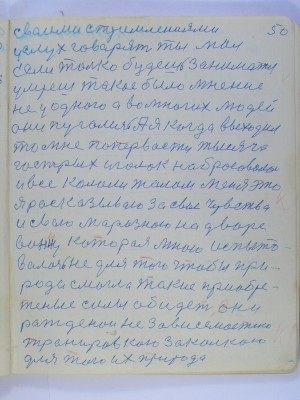 своими стремлениями 50
услух говорят ты мол
если только будешь заниматя
умреш такое было мнение
не у одного а во многих людей
они пуголись А я когда выходил
то мне попервасти тысяча
гострых иголок набросовалось
и все кололи телом меня это
я росказываю за свои чувства
и свою марозною на дворе
ванну которая мною испыто-
валось не для того чтобы при-
рода смогла такие приобре-
теные силы обидет они
ражденои не зависемостью
тренировкою закалкою
для того их природа